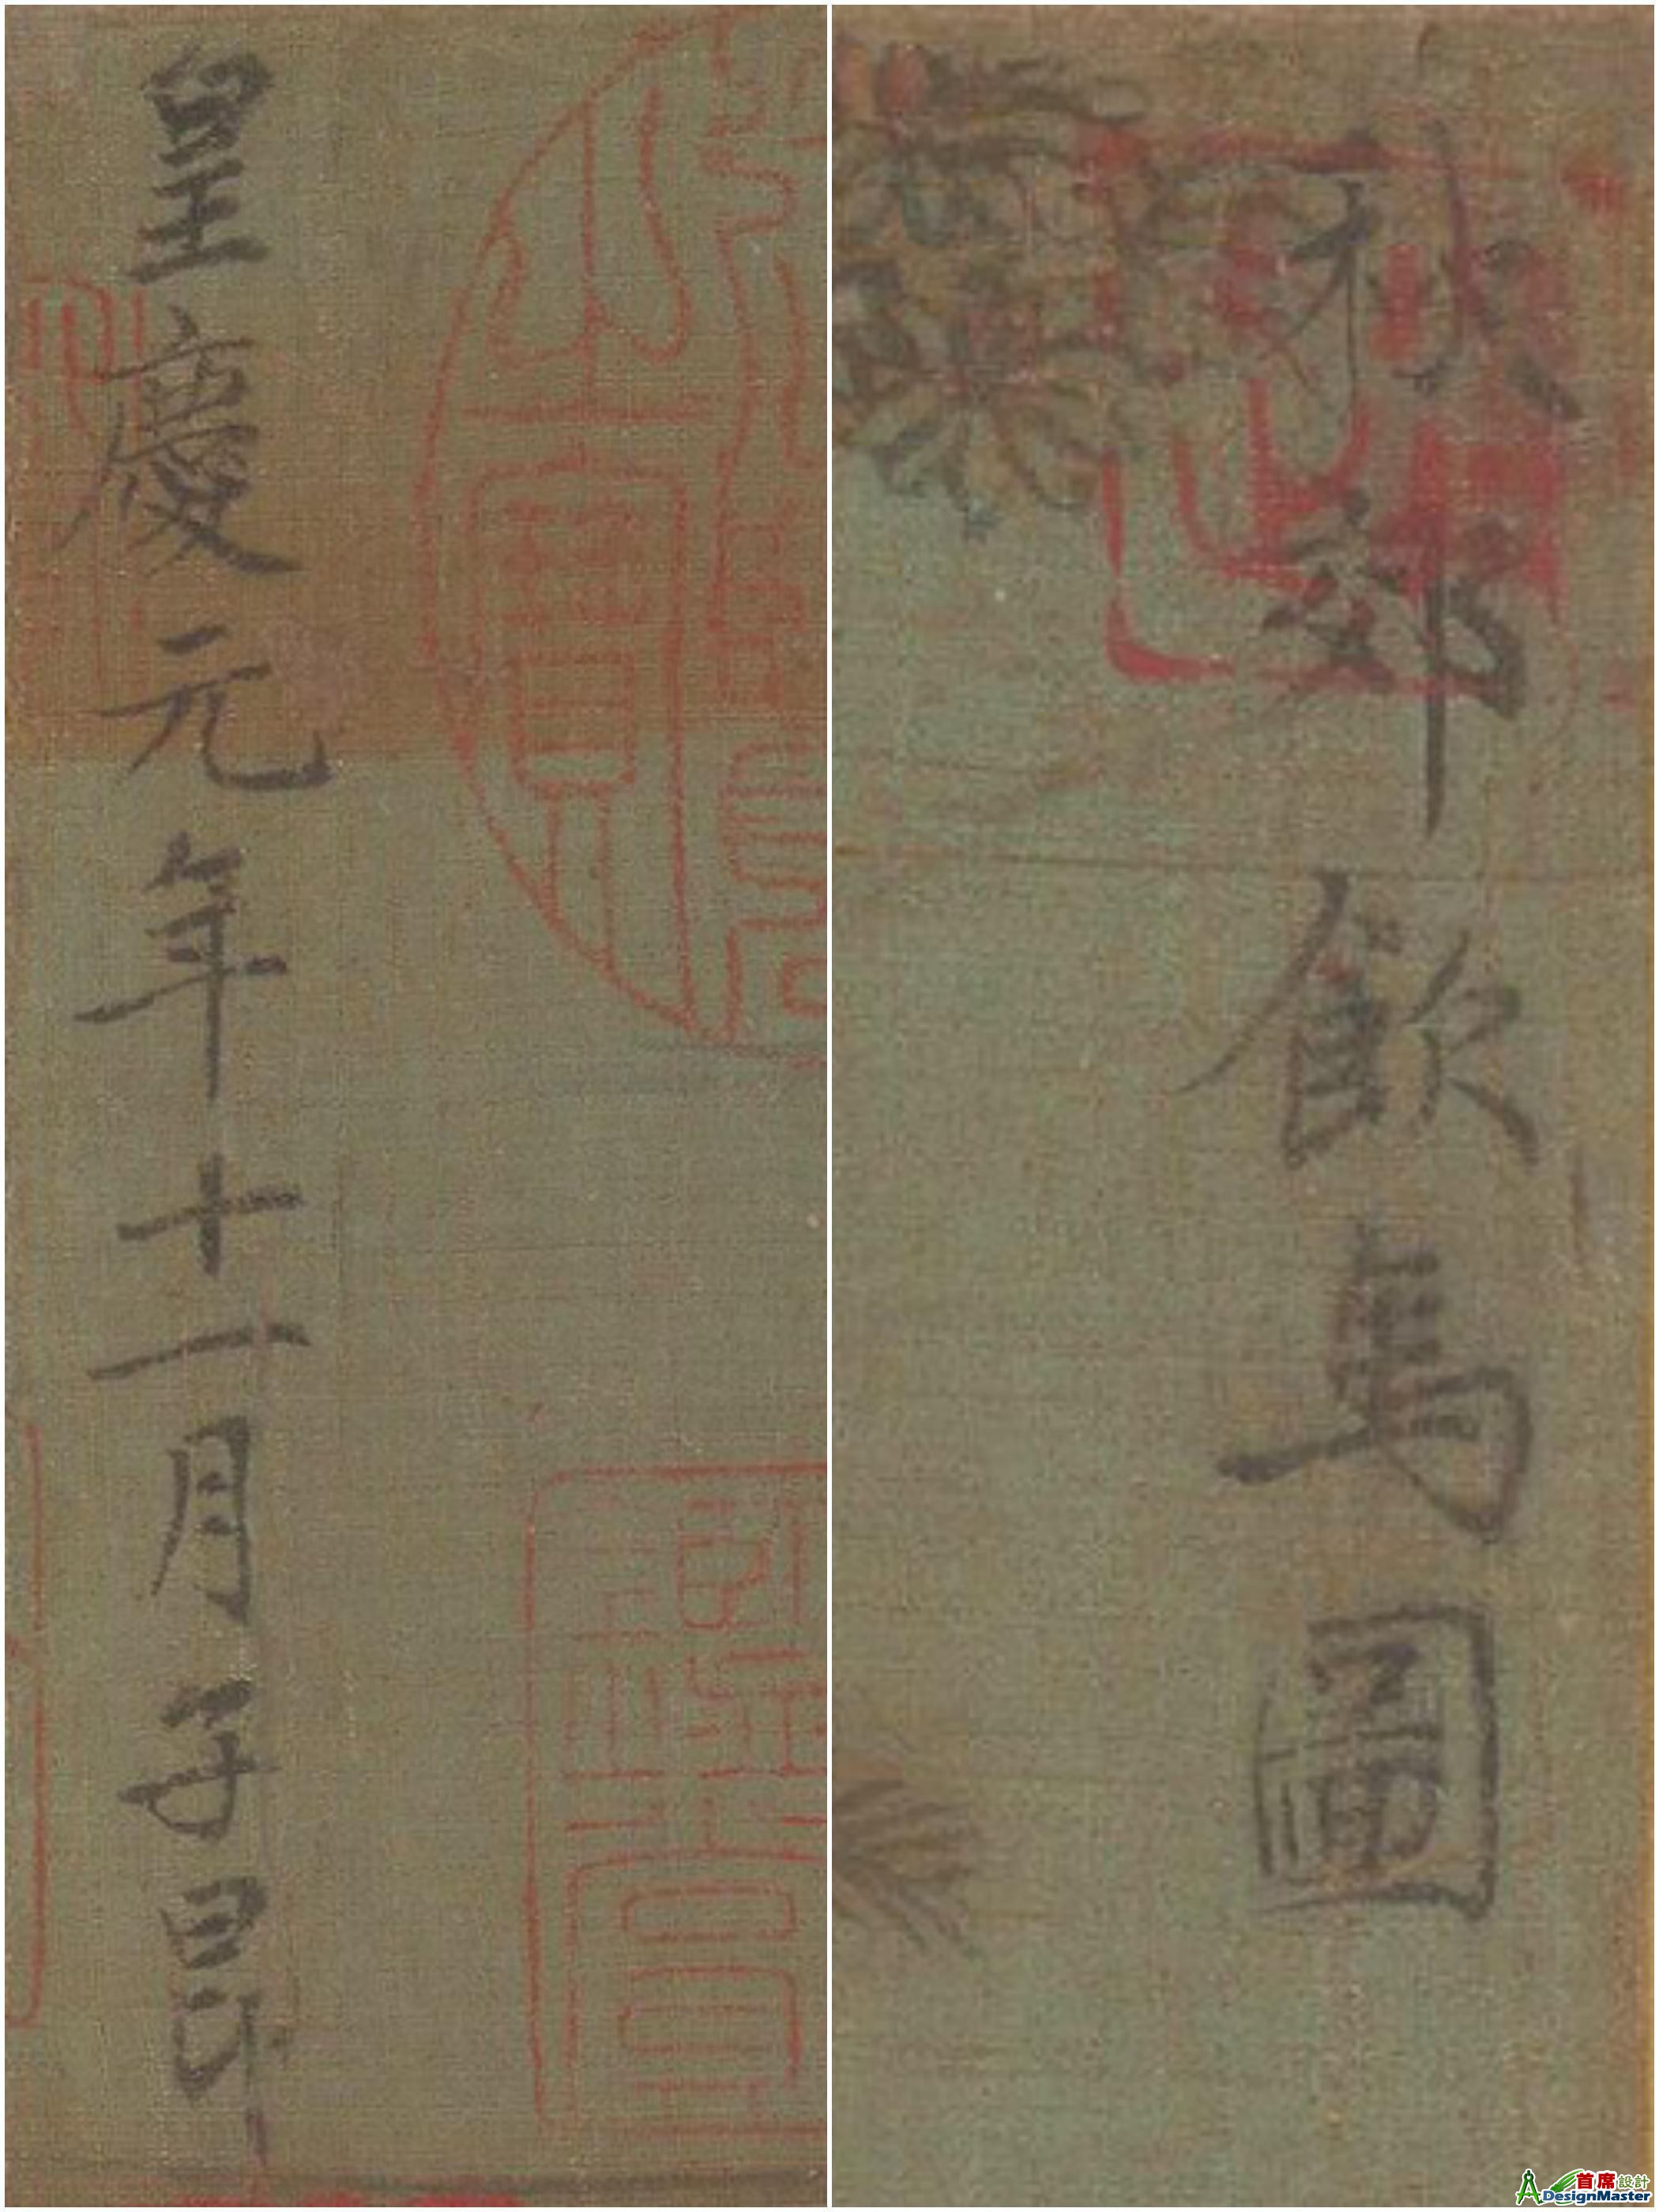 秋郊飲馬圖
皇慶元年十一月子昂
首席設計
DesignMaster